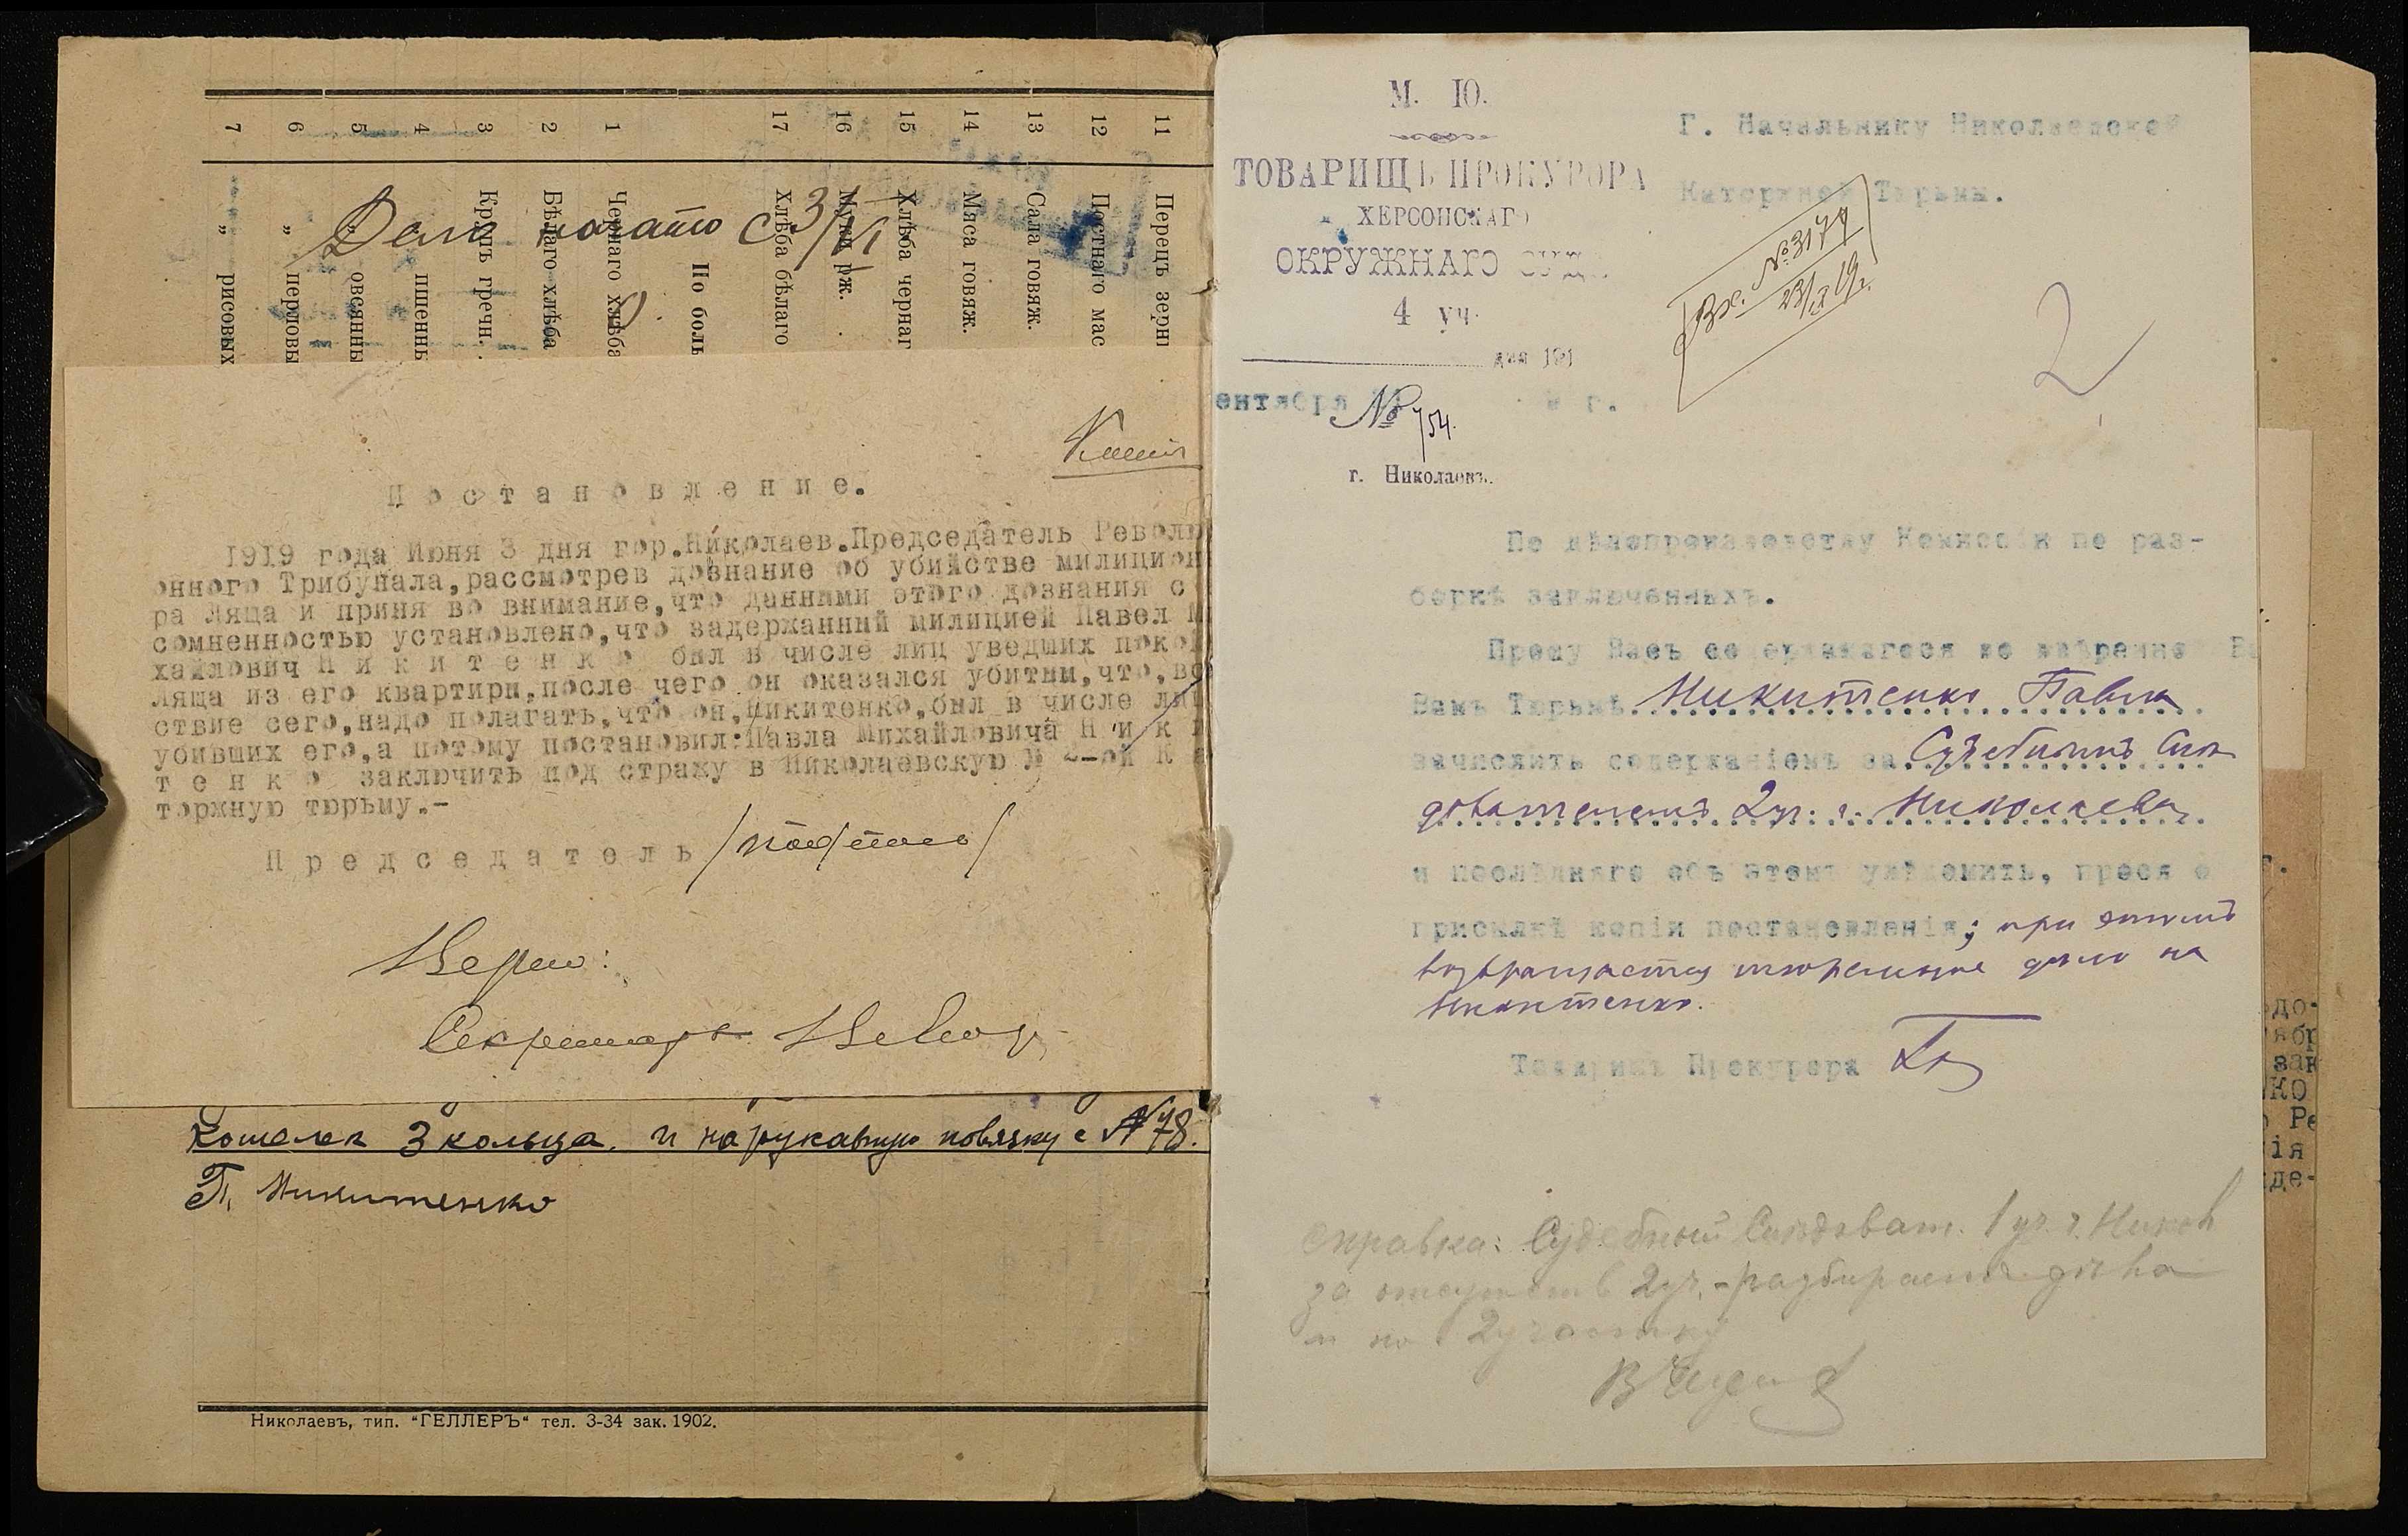 11
12
13
14
15
16
17
1
2
3
4
5
6
7
Перецъ зерн
Постнаго мас
Сала говяж.
Мяса говяж.
Хлѣба чернаг
Муки рж.
Хлѣба бѣлаго
По боль
Чернаго хлѣба
Бѣлаго хлѣба
Крупъ гречн.
" пшеннь
" овсянны
" перловы
" рисовых
Дело начато с 3/VI
Копия
Постановление.
1919 года Июня 3 дня гор.Николаев.Председатель Револю
онного Трибунала,рассмотрев дознание об убийстве милицион
ра Ляща и приня во внимание,что данными этого дознания с
сомненностью установлено,что задержанный милицией Павел М
хайлович Н и к и т е н к о был в числе лиц уведших покой
Ляща из его квартиры,после чего он оказался убитым,что,вс
ствие сего,надо полагать,что он,Никитенко,был в числе ли
убивших его,а потому постановил:Павла Михайловича Н и к и
т е н к о заключить под стражу в Николаевскую № 2-ой К а
торжную тюрьму.-
Председатель /подпись/
Верно:
Секретарь
кошелек 3 кольца. и нарукавную повязку с № 78.
П. Никитенко
Николаевъ, тип. "ГЕЛЛЕРЪ" тел. 3-34 зак. 1902.
М. Ю.
ТОВАРИЩЪ ПРОКУРОРА
ХЕРСОНСКАГО
ОКРУЖНАГО СУДА
4 уч.
дня 191
ентября г.
№ 754.
г. Николаевъ.
Г. Начальнику Николаевской
Каторжной Тюрьмы.
Вх. № 3179
23/IX 19 г.
2
По дѣлопроизводству Комиссіи по раз-
боркѣ заключенныхъ.
Прошу Васъ содержащагося во ввѣренно В
Вамъ Тюрьмѣ Никитенко Павла
зачислить содержаніемъ за Судебнымъ Слѣ
дователемъ 2 уч. г. Николаева
и послѣдняго объ этомъ увѣдомить, прося о
присылкѣ копіи постановленія; при этомъ
возвращается тюремное дѣло на
Никитенко.
Товарищъ Прокурора
Справка: Судебный Слѣдоват. 1 уч. г. Никол
за отсутств 2 уч. - разбирает дѣла
и по 2 участку
г.
до-
ябр
зак
КО
о Ре
ія
де-